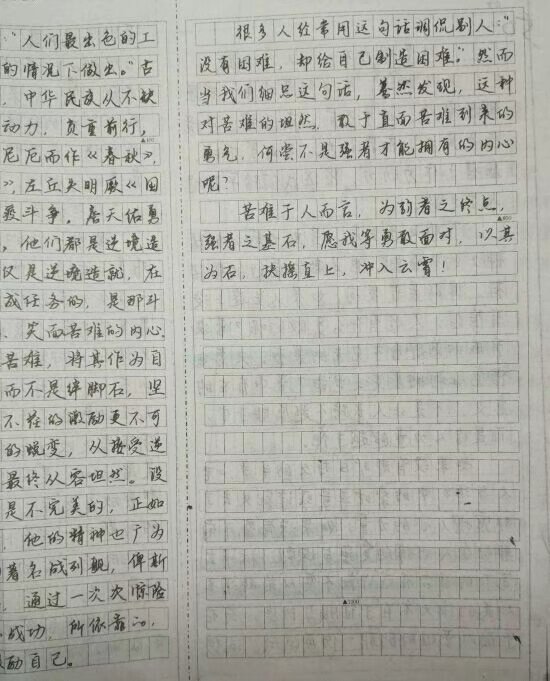 "人们最出色的工
的情况下做出。"古
，中华民族从不缺
动力，负重前行，
尼厄而作《春秋》，
》，左丘失明厥《国
艰斗争，詹天佑勇
，他们都是逆境造
仅是逆境造就，在
成任务的，是那斗
、笑面苦难的内心。
苦难，将其作为自
而不是绊脚石，坚
不在的激励更不可
的蜕变，从接受逆
最终从容坦然。没
是不完美的，正如
，他的精神也广为
著名战列舰，俾斯
，通过一次次惊险
成功，所依靠的，
励自己。
很多人经常用这句话调侃别人："
没有困难，却给自己制造困难。"然而
当我们细思这句话，蓦然发现，这种
对苦难的坦然，敢于直面苦难到来的
勇气，何尝不是强者才能拥有的内心
呢？
苦难于人而言，为弱者之终点，
强者之基石，愿我等勇敢面对，以其
为石，扶摇直上，冲入云霄！
▲800
▲1000